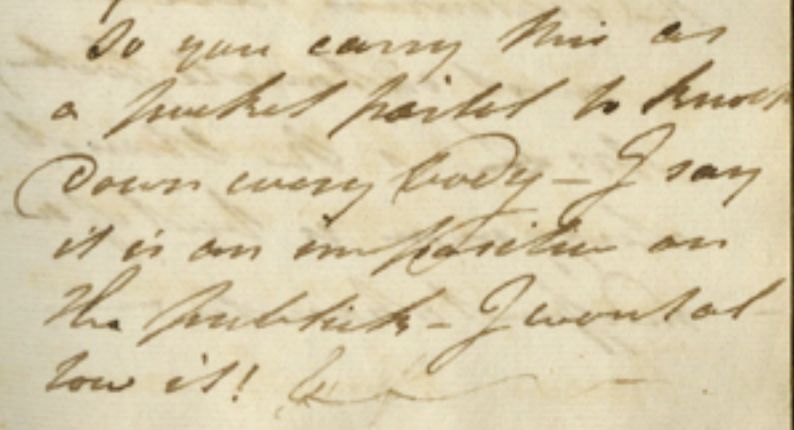 So you carry this as
a pocket pistol to knock
down every body - I say
it is an imposition on
the publick - I wont al
low it!